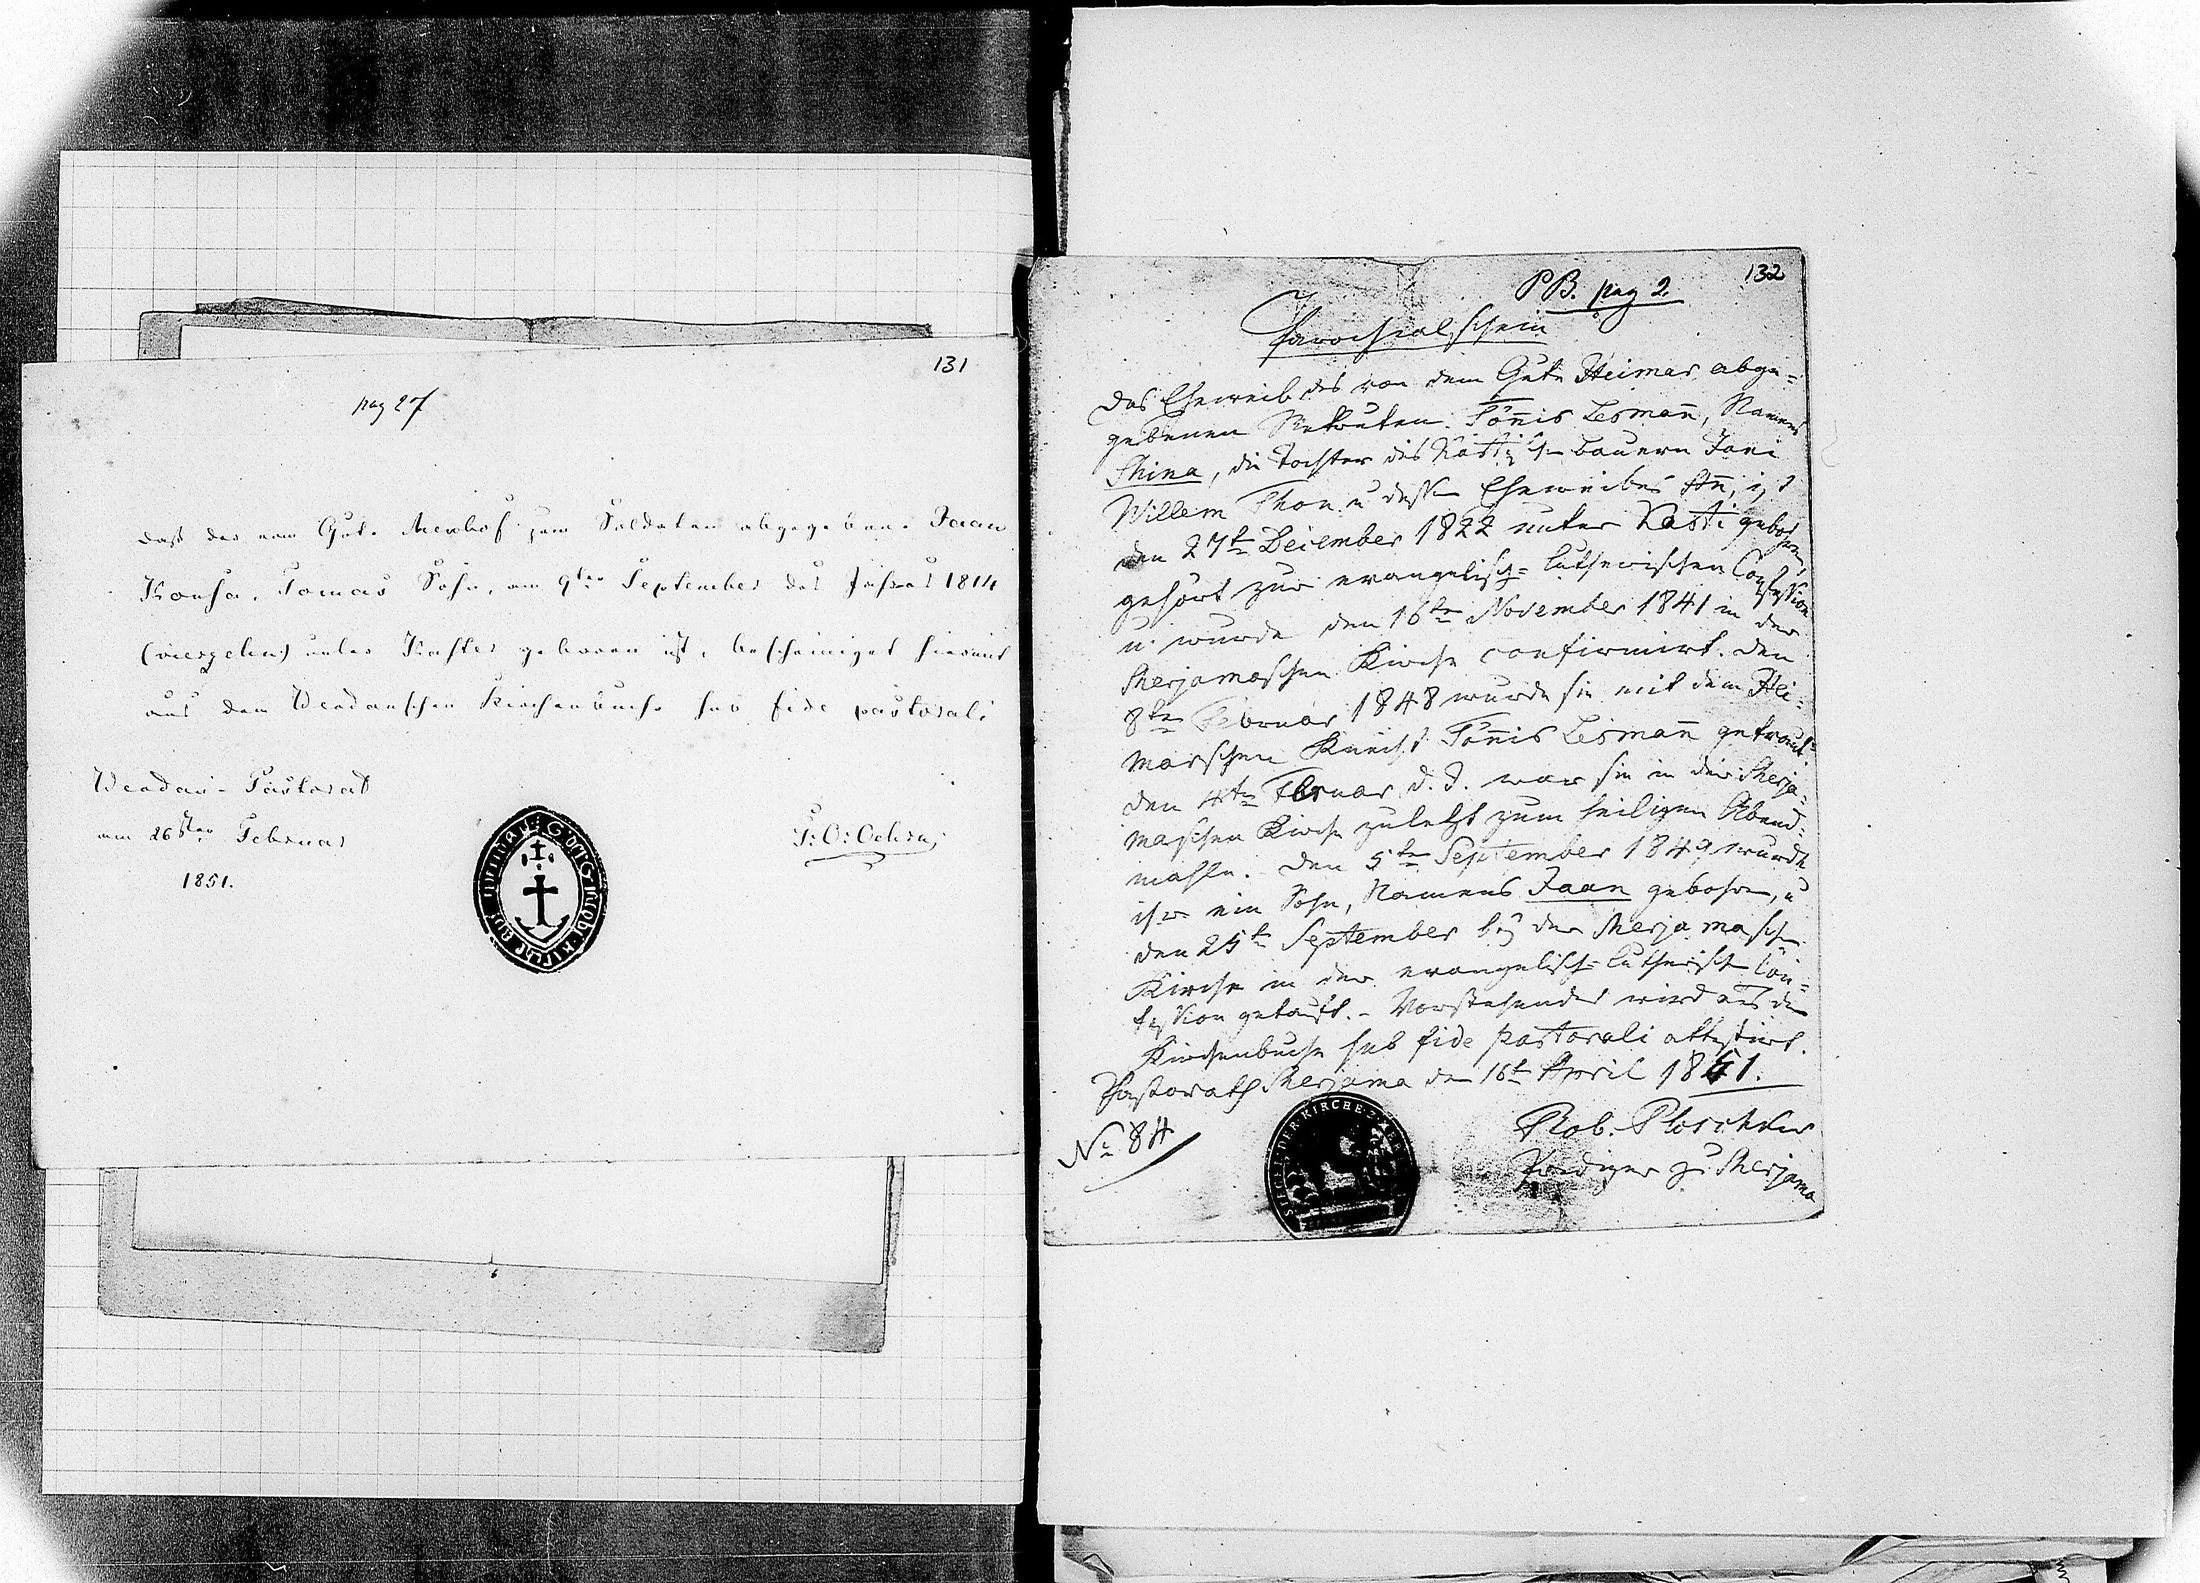 131
pag 27
daß der vom Gute Merxhof zum Soldaten abgegebene Jaan
Konsa, Tomas Sohn, am 9ten September des Jahres 1814
(vierzehn) unter geboren ist, bescheiniget hiermit
aus dem Werdenschen Kirchenbuche sub fide pastorali
Werden-Pastorat
am 26sten Februar
1851.
132
PB. pag 2.
Parochialschein
Das Eheweib des von dem Gute Heimar abge-
gebenen Rekruten Tönnis Lesmann, Namens
Thina, die Tochter des Kastischen Bauern Jani
Willem Thon u. dessen Eheweibes ist
den 27ten December 1822 unter Kasti geboren,
gehört zur evangelisch-lutherischen Confession
u. wurde den 16ten November 1841 in der
Merjamaschen Kirche confirmirt. Den
8ten Februar 1848 wurde sie mit dem Hei-
marschen Knecht Tönnis Lesmann getraut.
Den 4ten Februar d. J. war sie in der Merja-
maschen Kirche zuletzt zum heiligen Abend-
mahle. Den 5ten September 1849 wurde
ihr ein Sohn, Namens Jaan geboren, u
den 25ten September bei der Merjamaschen
Kirche in der evangelisch-lutherischen Con-
fession getauft. - Vorstehendes wird aus dem
Kirchenbuche sub fide pastorali attestirt.
Pastorath Merjama den 16ten April 1851.
No 84
Rob.
Prediger zu Merjama